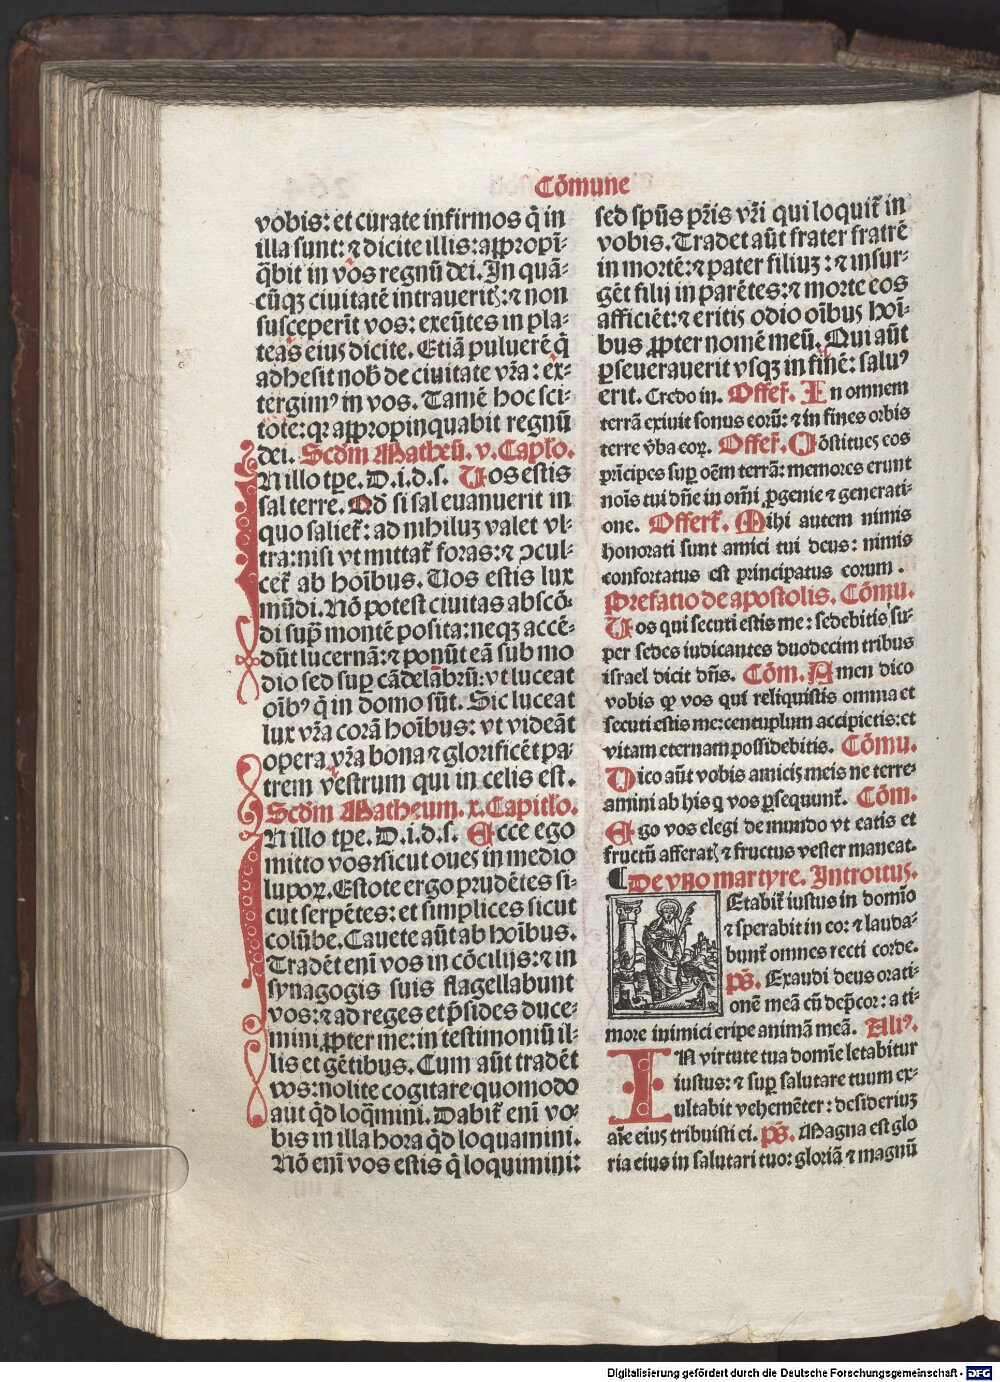 Cōmune
vobis: et curate infirmos q̄ in
illa sunt: ⁊ dicite illis: appropī-
q̄bit in vos regnū dei. In quā-
cūqꝫ ciuitatē intraueritꝭ: ⁊ non
susceperīt vos: exeūtes in pla-
teas eius dicite. Etiā puluerē q̄
adhesit nob̄ de ciuitate vr̄a: ex-
tergimꝰ in vos. Tamē hoc sci-
tote: qꝛ appropinquabit regnū
dei. Scd̄m Matheū. v. Caplo.
IN illo tꝑe. D. i. d. s. Uos estis
sal terre. Qd̄ si sal euanuerit in
quo salieť: ad nihiluꝫ valet vl-
tra: nisi vt mittať foras: ⁊ ↄcul-
ceť ab hoībus. Uos estis lux
mūdi. Nō potest ciuitas abscō-
di supꝛ montē posita: neqꝫ accē-
dūt lucernā: ⁊ ponūt eā sub mo
dio sed suꝑ cādelabrū: vt luceat
oībꝰ q̄ in domo sūt. Sic luceat
lux vr̄a corā hoībus: vt videāt
opera vr̄a bona ⁊ glorificēt pa-
trem vestrum qui in celis est.
Scd̄m Matheum. x. Capitlo.
IN illo tꝑe. D. i. d. s. Ecce ego
mitto vos sicut oues in medio
lupoꝝ. Estote ergo prudētes si-
cut serpētes: et simplices sicut
colūbe. Cauete aūt ab hoībus.
Tradēt enī vos in cōcilijs: ⁊ in
synagogis suis flagellabunt
vos: ⁊ ad reges et p̄sides duce-
mini ꝓpter me: in testimoniū il-
lis et gētibus. Cum aūt tradēt
vos: nolite cogitare quomodo
aut q̄d loq̄mini. Dabiť enī vo-
bis in illa hora q̄d loquamini.
Nō enī vos estis q̄ loquimini:
sed spūs pr̄is vr̄i qui loquiť in
vobis. Tradet aūt frater fratrē
in mortē: ⁊ pater filiuꝫ: ⁊ insur-
gēt filij in parētes: ⁊ morte eos
afficiēt: ⁊ eritis odio oībus hoī-
bus ꝓpter nomē meū. Qui aūt
ꝑseuerauerit vsqꝫ in finē: saluꝰ
erit. Credo in. Offeř. In omnem
terrā exiuit sonus eorū: ⁊ in fines orbis
terre v̄ba eoꝝ. Offeř. Cōstitues eos
prīcipes suꝑ oēm terrā: memores erunt
noīs tui dn̄e in om̄i ꝓgenie ⁊ generati-
one. Offerť. Mihi autem nimis
honorati sunt amici tui deus: nimis
confortatus est principatus eorum.
Prefatio de apostolis. Cōmu.
Uos qui secuti estis me: sedebitis su-
per sedes iudicantes duodecim tribus
israel dicit dn̄s. Cōm. Amen dico
vobis ꝙ vos qui reliquistis omnia et
secuti estis me: centuplum accipietis: et
vitam eternam possidebitis. Cōmu.
Dico aūt vobis amicis meis ne terre-
amini ab his q̄ vos ꝑsequunť. Cōm.
Ego vos elegi de mundo vt eatis et
fructū afferatꝭ ⁊ fructus vester maneat.
¶ De vno martyre. Introitus.
Letabiť iustus in domīo
⁊ sperabit in eo: ⁊ lauda-
bunť omnes recti corde.
ps̄. Exaudi deus orati-
onē meā cū dep̄cor: a ti-
more inimici eripe animā meā. Aliꝰ.
IN virtute tua domīe letabitur
iustus: ⁊ suꝑ salutare tuum ex-
ultabit vehemēter: desideriuꝫ
aīe eius tribuisti ei. ps̄. Magna est glo
ria eius in salutari tuo: gloriā ⁊ magnū
Digitalisierung gefördert durch die Deutsche Forschungsgemeinschaft - DFG